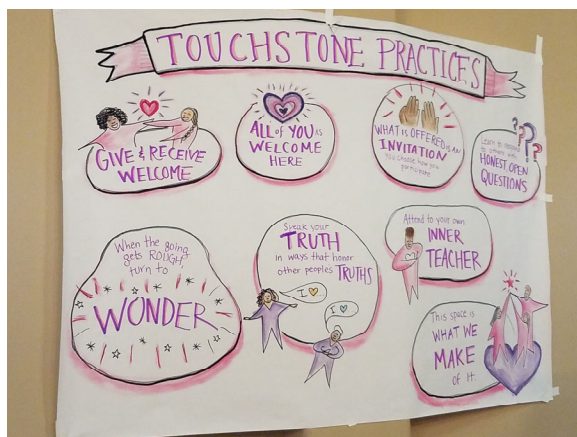 TOUCHSTONE PRACTICES
GIVE & RECEIVE
WELCOME
ALL of YOU is
WELCOME
HERE
WHAT IS OFFERED IS AN
INVITATION
you choose how you
participate
Learn to respond
to others with
HONEST, OPEN
QUESTIONS
???
When the going
gets ROUGH,
turn to
WONDER
Speak your
TRUTH
in ways that honor
other peoples TRUTHS
I
I
Attend to your own
INNER
TEACHER
This space is
WHAT WE
MAKE
of IT.